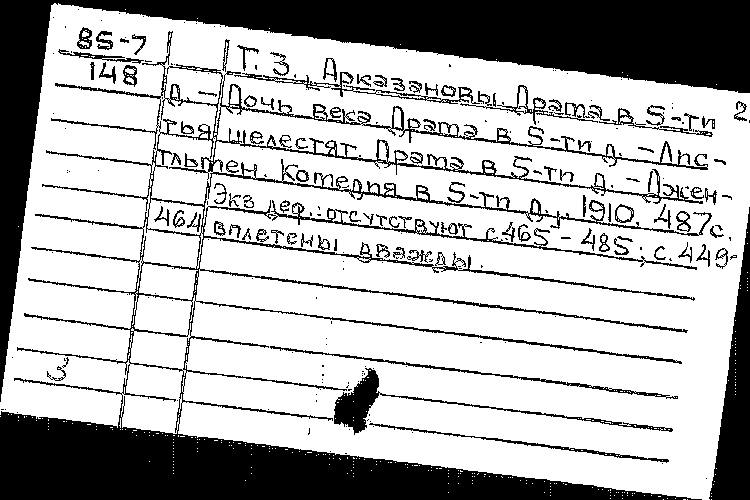 85-7
148
Т. 3., Арказановы. Драма в 5-ти
д. - Дочь века. Драма в 5-ти д. - Лис-
тья шелестят. Драма в 5-ти д. - Джен-
тльмен. Комедия в 5-ти д., 1910. 487с.
Экз деф.: отсутствуют с.465 - 485; с.449-
464 вплетены дважды.
2
3